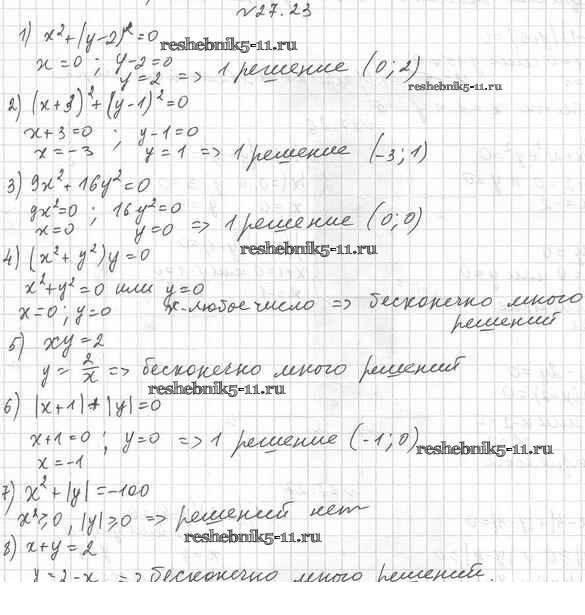 №27.23
1) x²+(y-2)²=0
x=0 ; y-2=0
y=2 => 1 решение (0;2)
reshebnik5-11.ru
reshebnik5-11.ru
2) (x+3)²+(y-1)²=0
x+3=0 ; y-1=0
x=-3 y=1 => 1 решение (-3;1)
3) 9x²+16y²=0
9x²=0 ; 16y²=0
x=0 y=0 => 1 решение (0;0)
reshebnik5-11.ru
4) (x²+y²)y=0
x²+y²=0 или y=0
x=0; y=0 x-любое число => бесконечно много
решений
reshebnik5-11.ru
5) xy=2
y=2/x => бесконечно много решений
reshebnik5-11.ru
6) |x+1|+|y|=0
x+1=0 ; y=0 => 1 решение (-1;0)
x=-1
reshebnik5-11.ru
7) x²+|y|=-100
x²≥0, |y|≥0 => решений нет
reshebnik5-11.ru
8) x+y=2
y=2-x => бесконечно много решений.